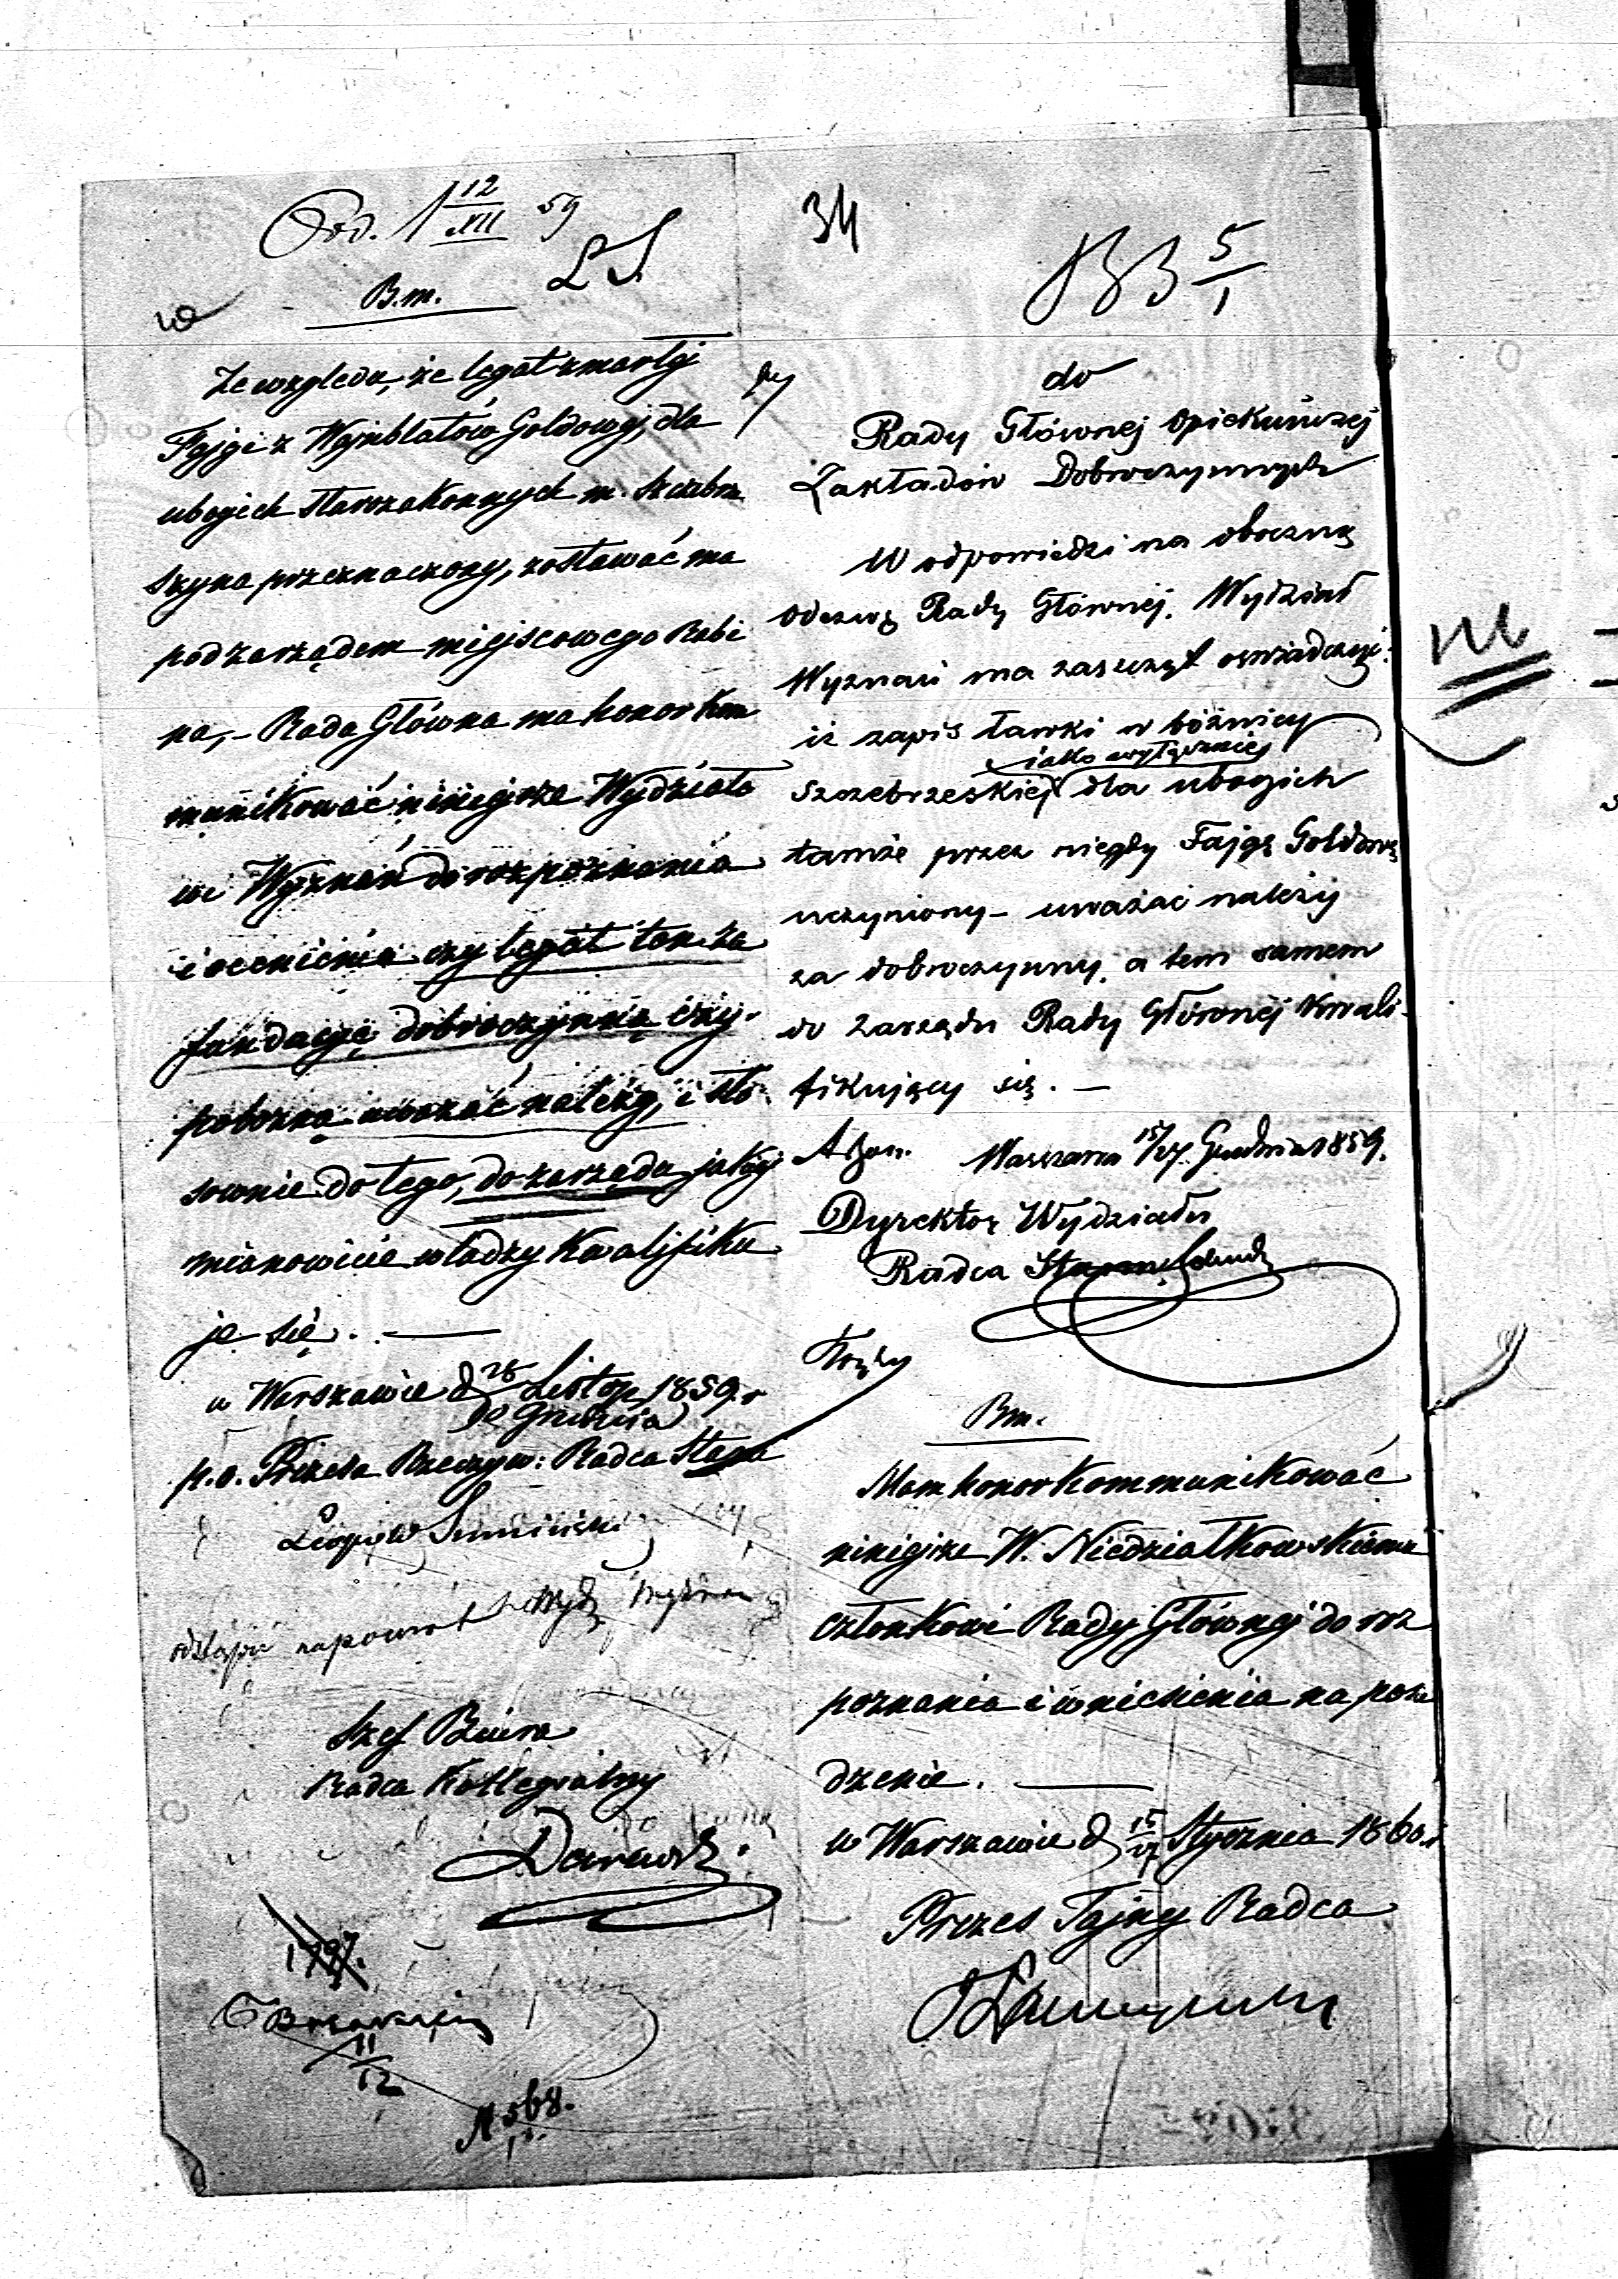 Od. 1 12/XII 59
LS.
B.m.
Ze względu, że legat zmarłej
Fajgi z Wajnblatów Goldowej, dla
ubogich Starozakonnych m. Szczebrze
szyna przeznaczony, zostawać ma
pod zarządem miejscowego Rabi
na, – Rada Główna ma honor kom
munikować niniejsze Wydziało
wi Wyznań do rozpoznania
i ocenienia czy legat ten za
fundacyę dobroczynną czy
pobożną uważać należy, i sto
sownie do tego, do zarządu jakiej
mianowicie władzy kwalifiku
je się. —
w Warszawie d 28 Listop. 1859 r
10 Grudnia
p.o. Prezesa Rzeczyw: Radca Stanu
odstąpić napowrót
Szef Biura
Radca Kollegialny
1797.
11/12
N 568.
34
5/1
do
Rady Głównej Opiekuńczej
Zakładów Dobroczynnych
W odpowiedzi na oboczną
Odezwę Rady Głównej, Wydział
Wyznań ma zaszczyt oświadczyć:
iż zapis ławki w bóżnicy
jako wyłącznie
Szczebrzeskiej dla ubogich
tamże przez niegdy Fajgę Goldową
uczyniony – uważać należy
za dobroczynny, a tem samem
do Zarządu Rady Głównej kwali-
fikujący się. —
Warszawa 15/27 Grudnia 1859.
Dyrektor Wydziału
Radca Stanu
Bm.
Mam honor Kommunikować
niniejsze W. Niedziałkowskiemu
Członkowi Rady Głównej do roz
poznania i wniesienia na posie
dzenie. —
w Warszawie d Stycznia 1860 r
Prezes Tajny Radca